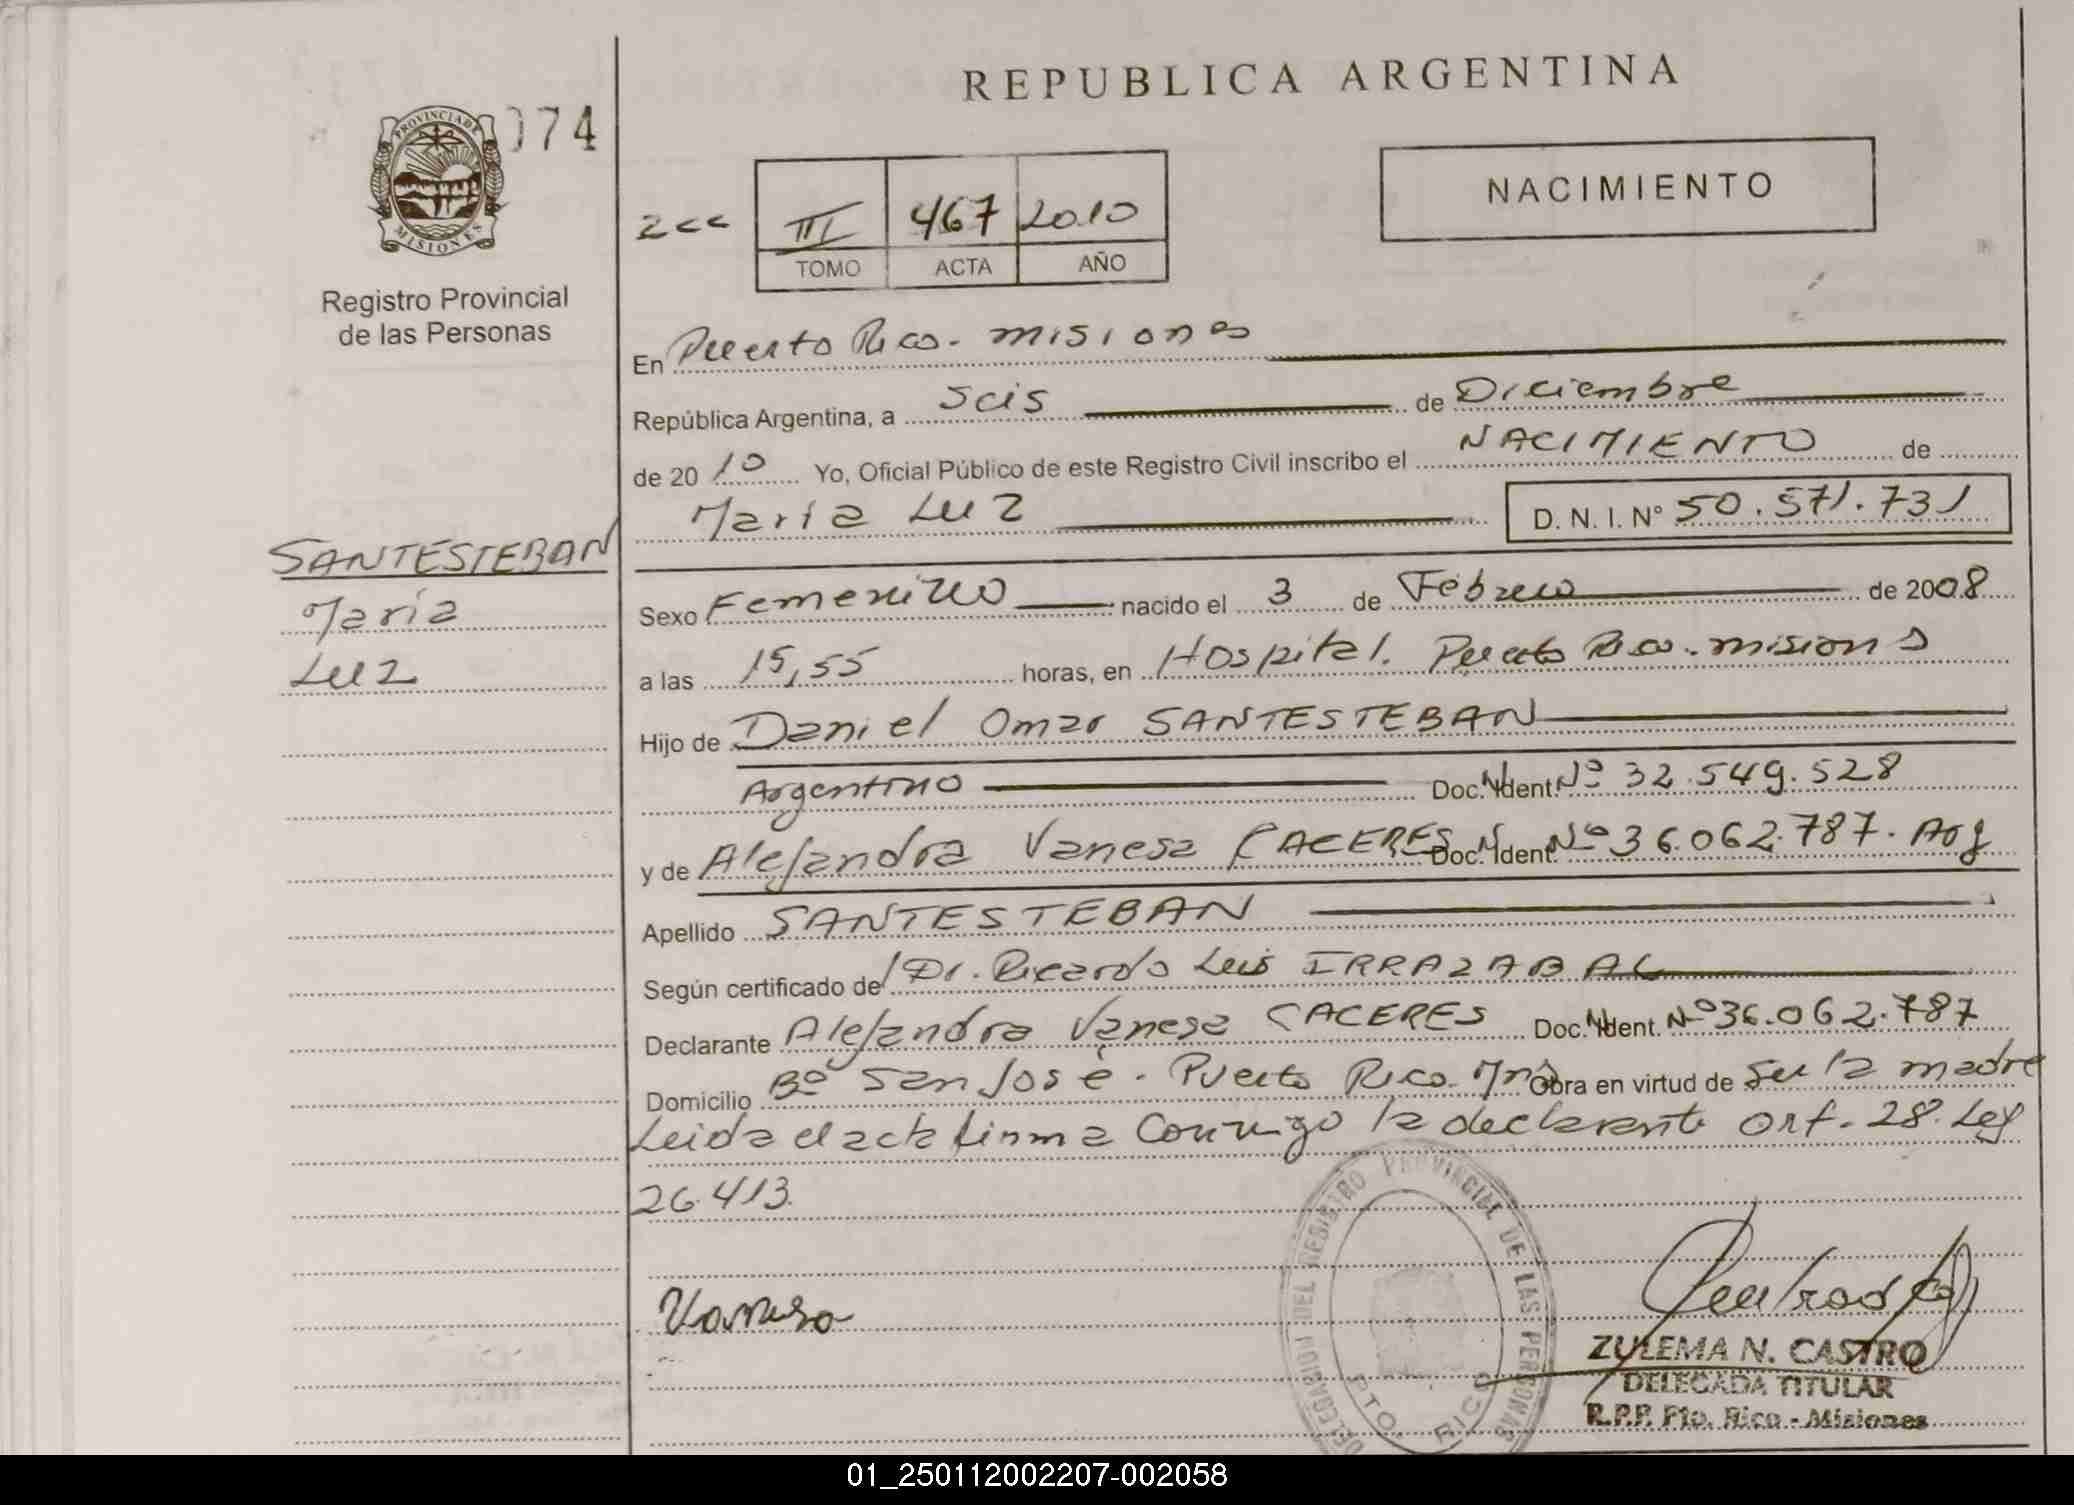 REPUBLICA ARGENTINA
074
PROVINCIA DE
MISIONES
Registro Provincial
de las Personas
2cc
III 467 2010
TOMO ACTA AÑO
NACIMIENTO
En Puerto Rico. misiones
República Argentina, a Seis de Diciembre
de 2010 Yo, Oficial Público de este Registro Civil inscribo el NACIMIENTO de
María Luz D. N. I. N° 50.571.731
SANTESTEBAN
María
Luz
Sexo Femenino nacido el 3 de Febrero de 2008
a las 15,55 horas, en Hospital. Puerto Rico. misiones
Hijo de Daniel Omar SANTESTEBAN
Argentino Doc. Ident. Nº 32.549.528
y de Alejandra Vanesa CACERES Doc. Ident. Nº 36.062.787. Arg
Apellido SANTESTEBAN
Según certificado de Dr. Ricardo Luis IRRAZABAL
Declarante Alejandra Vanesa CACERES Doc. Ident. Nº 36.062.787
Domicilio Bº San José. Puerto Rico. Mnes Obra en virtud de Ser la madre
Leida el acta firma Conmigo la declarante Art. 28. Ley
26.413.
Vanesa
DELEGACION DEL REGISTRO PROVINCIAL DE LAS PERSONAS
PTO. RICO
ZULEMA N. CASTRO
DELEGADA TITULAR
R.P.P. Pto. Rico - Misiones
01_250112002207-002058